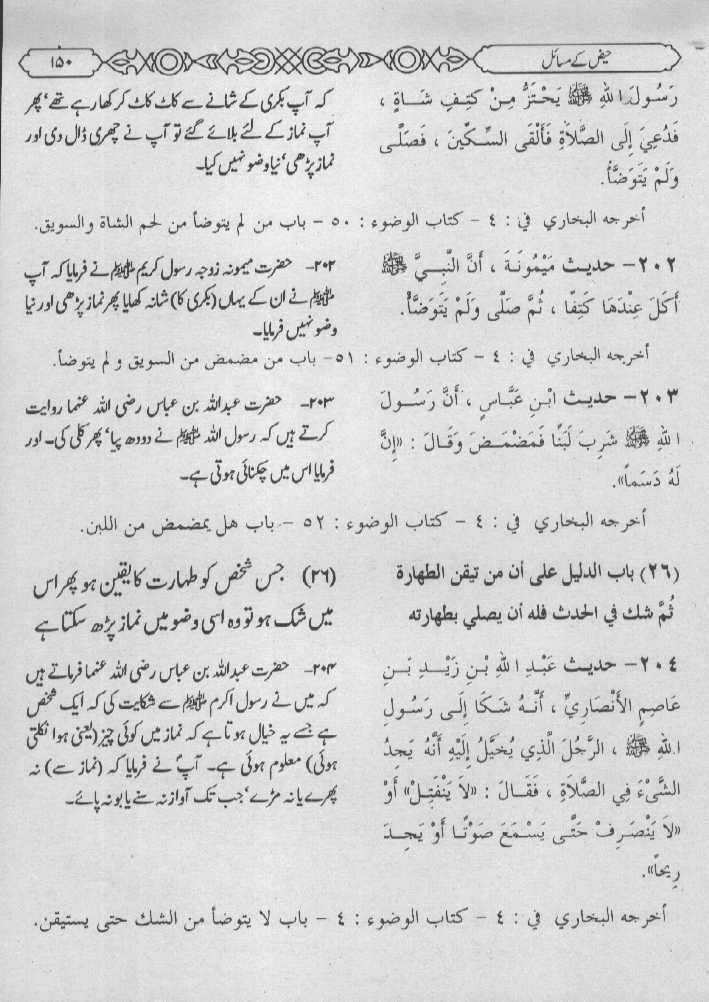 حیض کے مسائل
۱۵۰
رَسُولَ اللهِ ﷺ يَحْتَزُّ مِنْ كَتِفِ شَاةٍ ،
فَدُعِيَ إِلَى الصَّلَاةِ فَأَلْقَى السِّكِّينَ ، فَصَلَّى
وَلَمْ يَتَوَضَّأْ.
کہ آپ بکری کے شانے سے کاٹ کاٹ کر کھا رہے تھے‘ پھر
آپ نماز کے لئے بلائے گئے تو آپ نے چھری ڈال دی اور
نماز پڑھی‘ نیا وضو نہیں کیا۔
أخرجه البخاري في : ٤ - كتاب الوضوء : ٥٠ - باب من لم يتوضأ من لحم الشاة والسويق.
٢٠٢- حديث مَيْمُونَةَ ، أَنَّ النَّبِيَّ ﷺ
أَكَلَ عِنْدَهَا كَتِفًا ، ثُمَّ صَلَّى وَلَمْ يَتَوَضَّأْ.
۲۰۲۔ حضرت میمونہ زوجہ رسول کریم ﷺ نے فرمایا کہ آپ
ﷺ نے ان کے یہاں (بکری کا) شانہ کھایا پھر نماز پڑھی اور نیا
وضو نہیں فرمایا۔
أخرجه البخاري في : ٤ - كتاب الوضوء : ٥١- باب من مضمض من السويق و لم يتوضأ.
٢٠٣- حديث ابْنِ عَبَّاسٍ ، أَنَّ رَسُولَ
اللهِ ﷺ شَرِبَ لَبَنًا فَمَضْمَضَ وَقَالَ : «إِنَّ
لَهُ دَسَماً».
۲۰۳۔ حضرت عبداللہ بن عباس رضی اللہ عنما روایت
کرتے ہیں کہ رسول اللہ ﷺ نے دودھ پیا‘ پھر کلی کی۔ اور
فرمایا اس میں چکنائی ہوتی ہے۔
أخرجه البخاري في : ٤ - كتاب الوضوء : ٥٢ - باب هل يمضمض من اللبن.
(٢٦) باب الدليل على أن من تيقن الطهارة
ثُمَّ شك في الحدث فله أن يصلي بطهارته
(۲۶) جس شخص کو طہارت کا یقین ہو پھر اس
میں شک ہو تو وہ اسی وضو میں نماز پڑھ سکتا ہے
٢٠٤- حديث عَبْدِ اللهِ بْنِ زَيْدِ بْنِ
عَاصِمٍ الأَنْصَارِيِّ ، أَنَّهُ شَكَا إِلَى رَسُولِ
اللهِ ﷺ ، الرَّجُلَ الَّذِي يُخَيَّلُ إِلَيْهِ أَنَّهُ يَجِدُ
الشَّيْءَ فِي الصَّلَاةِ ، فَقَالَ : «لاَ يَنْفَتِلْ» أَوْ
«لاَ يَنْصَرِفْ حَتَّى يَسْمَعَ صَوْتًا أَوْ يَجِدَ
رِيحاً».
۲۰۴۔ حضرت عبداللہ بن عباس رضی اللہ عنما فرماتے ہیں
کہ میں نے رسول اکرم ﷺ سے شکایت کی کہ ایک شخص
ہے جسے یہ خیال ہوتا ہے کہ نماز میں کوئی چیز (یعنی ہوا نکلتی
ہوئی) معلوم ہوئی ہے۔ آپ نے فرمایا کہ (نماز سے) نہ
پھرے یا نہ مڑے‘ جب تک آواز نہ سنے یا بو نہ پائے۔
أخرجه البخاري في : ٤ - كتاب الوضوء : ٤ - باب لا يتوضأ من الشك حتى يستيقن.